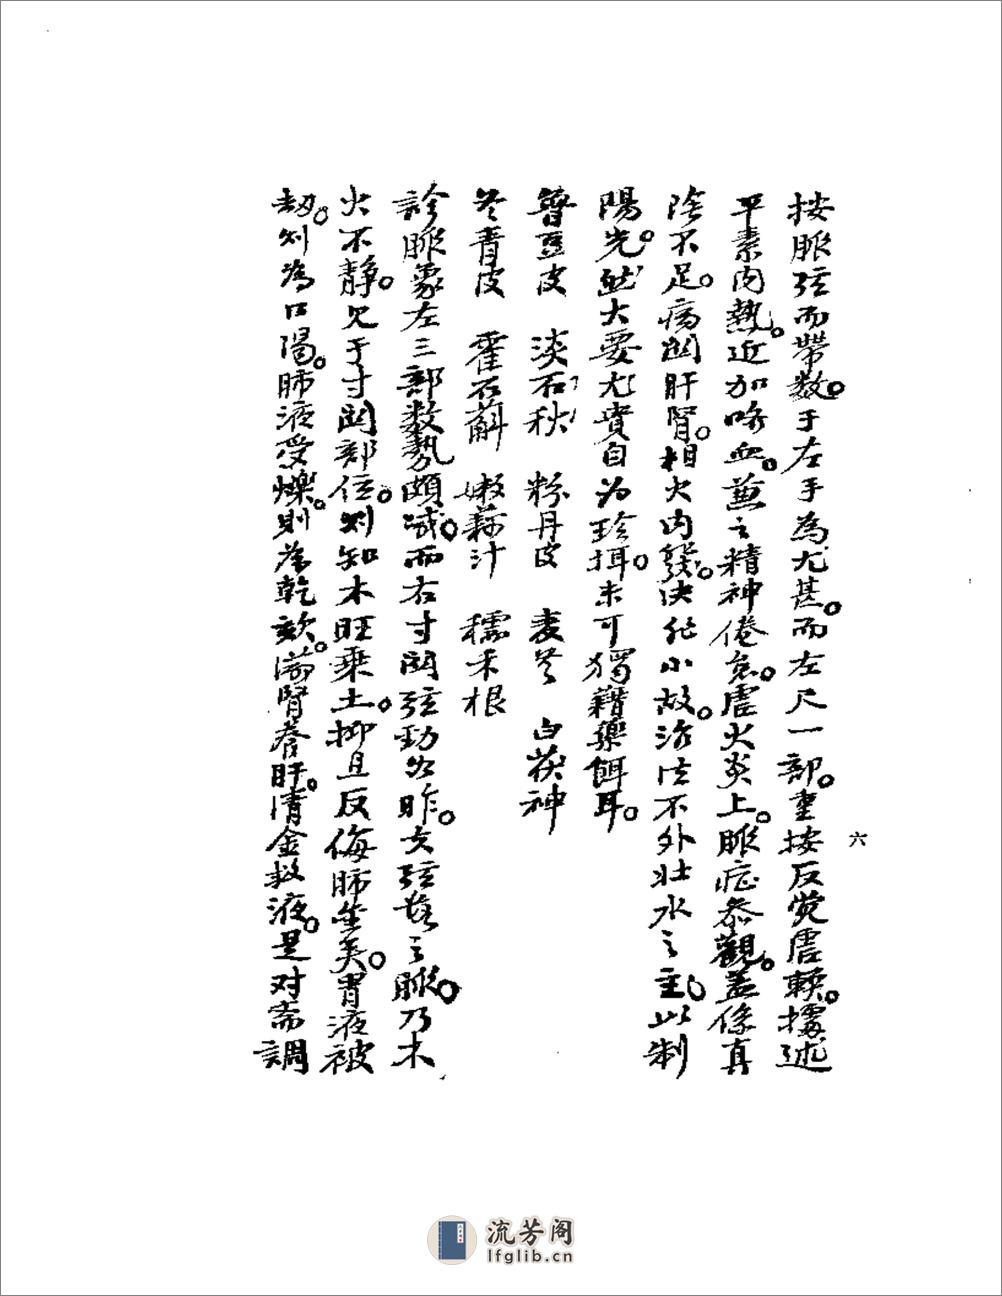 按脈弦而帶數。于左手為尤甚。而左尺一部。重按反覺虛軟。據述
平素内熱。近加咯血。兼之精神倦怠。虛火炎上。脈症叅觀。蓋係真
陰不足。病関肝腎。相火内發。决非小故。治法不外壯水之主。以制
陽光。然大要尤貴自为珍摂。未可獨藉藥餌耳。
穞豆皮 淡石秋 粉丹皮 麦冬 白茯神
冬青皮 霍石斛 嫩藕汁 糯禾根
診脈象左三部数勢頗减。而右寸関弦勁如昨。夫弦長之脈。乃木
火不静。見于寸関部位。则知木旺乘土。抑且反侮肺金矣。胃液被
劫。则為口渴。肺液受爍。則為乾欬。滋腎養肝。清金救液。是对斋調
六
流芳阁
lfglib.cn